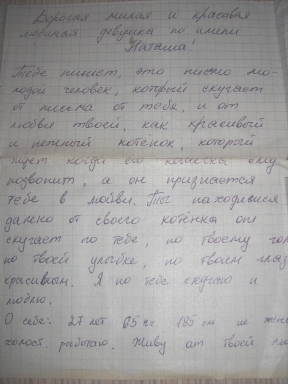 Дорогая милая и красивая
любимая девушка по имени
Наташа!
Тебе пишет, это письмо мо-
лодой человек, который скучает
от письма от тебя, и от
любви твоей, как красивый
и нежный котёнок, который
ждет когда его кошечка ему
позвонит, а он признается
тебе в любви. Ты находишся
далеко от своего котёнка он
скучает по тебе, по твоему гол
по твоей улыбке, по твоим глаз
красивым. Я по тебе скучаю и
люблю.
О себе: 27 лет 65 кг. 185 см. не жен
холост, работаю. Живу от твоей